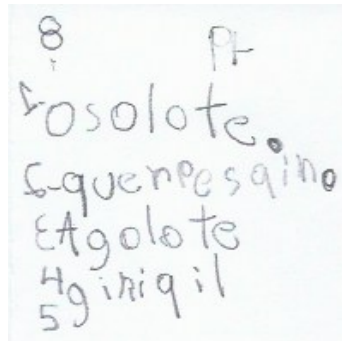 8 Pt
1-osolote.
2-quenpesqino
3Agolote
4giriqil
5